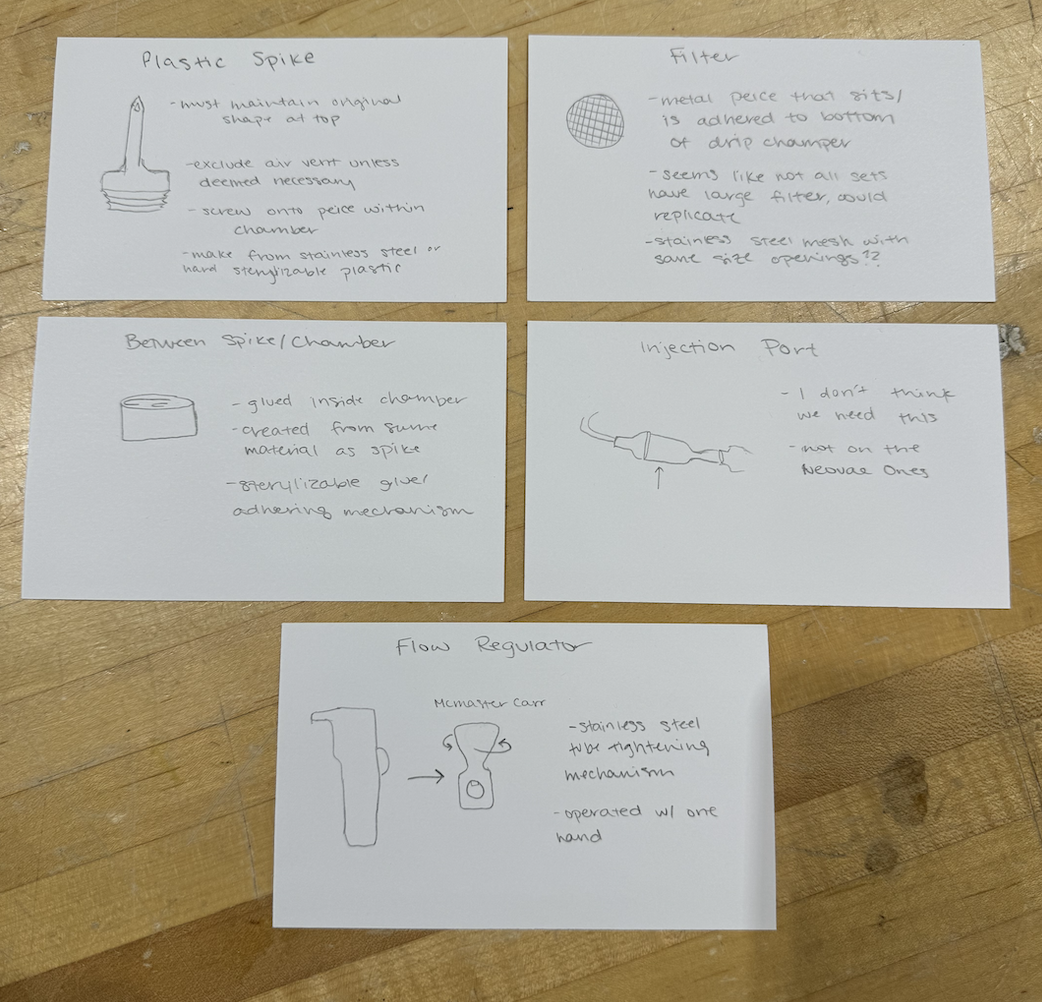 Plastic Spike
- must maintain original
shape at top
- exclude air vent unless
deemed necessary
- screw onto peice within
chamber
- make from stainless steel or
hard sterylizable plastic
Filter
- metal peice that sits/
is adhered to bottom
of drip champer
- seems like not all sets
have large filter, could
replicate
- stainless steel mesh with
same size openings??
Between Spike/Chamber
- glued inside chamber
- created from same
material as spike
- sterylizable glue/
adhering mechanism
Injection Port
- I don't think
we need this
- not on the
Neovae Ones
Flow Regulator
Mcmaster Carr
- stainless steel
tube tightening
mechanism
- operated w/ one
hand